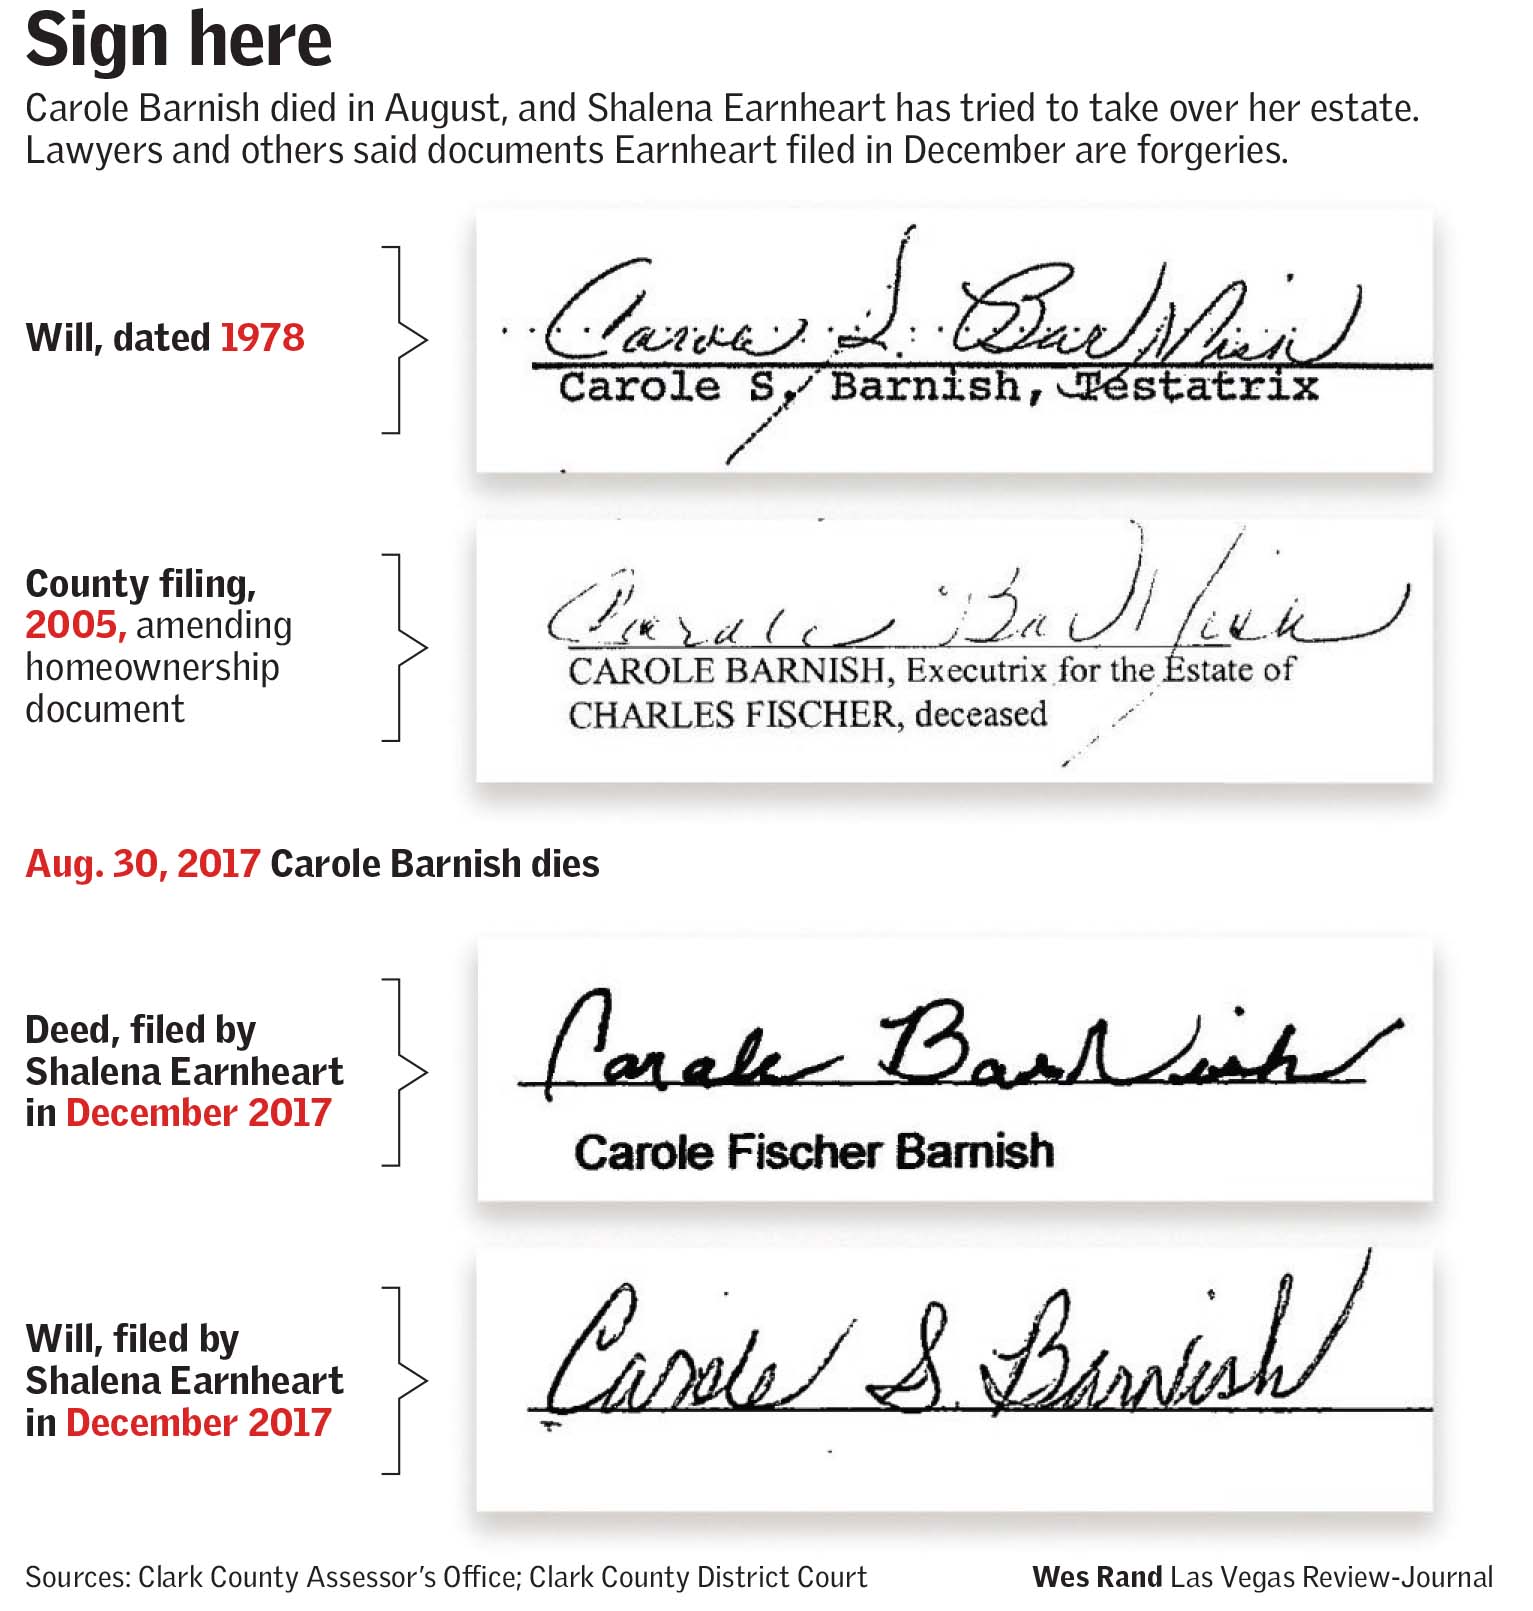 Sign here
Carole Barnish died in August, and Shalena Earnheart has tried to take over her estate.
Lawyers and others said documents Earnheart filed in December are forgeries.
Will, dated 1978
Carole S. Barnish
Carole S. Barnish, Testatrix
County filing,
2005, amending
homeownership
document
Carole Barnish
CAROLE BARNISH, Executrix for the Estate of
CHARLES FISCHER, deceased
Aug. 30, 2017 Carole Barnish dies
Deed, filed by
Shalena Earnheart
in December 2017
Carole Barnish
Carole Fischer Barnish
Will, filed by
Shalena Earnheart
in December 2017
Carole S. Barnish
Sources: Clark County Assessor's Office; Clark County District Court
Wes Rand Las Vegas Review-Journal